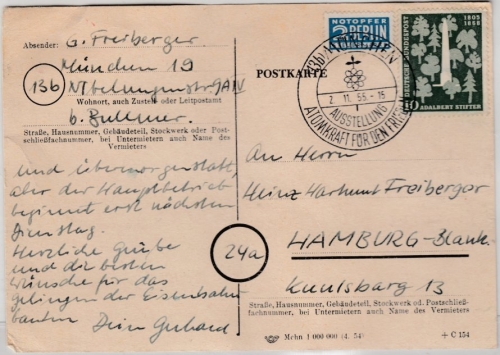 Absender: G. Freiberger
München 19
13b Nibelungenstr. 9A/IV
Wohnort, auch Zustell- oder Leitpostamt
b. Bullmer.
Straße, Hausnummer, Gebäudeteil, Stockwerk oder Post-
schließfachnummer, bei Untermietern auch Name des
Vermieters
und übermorgen statt,
aber der Hauptbetrieb
beginnt erst nächsten
Dienstag.
Herzliche Grüße
und die besten
Wünsche für das
gelingen der Eisenbahn
bauten Dein Gerhard
NOTOPFER
2 BERLIN
STEUERMARKE
DEUTSCHE BUNDESPOST
1805
1868
10 ADALBERT STIFTER
MÜNCHEN
2. 11. 55. - 15
AUSSTELLUNG
ATOMKRAFT FÜR DEN
POSTKARTE
An Herrn
Heinz Hartmut Freiberger
24a HAMBURG-Blank.
13
Straße, Hausnummer, Gebäudeteil, Stockwerk od. Postschließ-
fachnummer, bei Untermietern auch Name des Vermieters
Mchn 1 000 000 (4. 54) + C 154